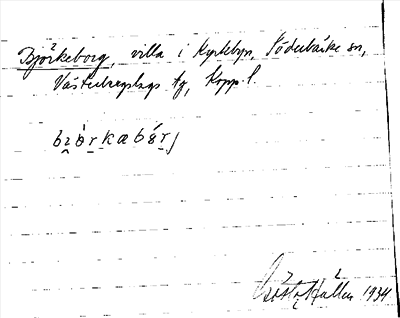 Björkeborg, villa i Kyrkbyn, Söderbärke sn,
Västerbergslags tg, Kopp. l.
Gösta Hallén 1934